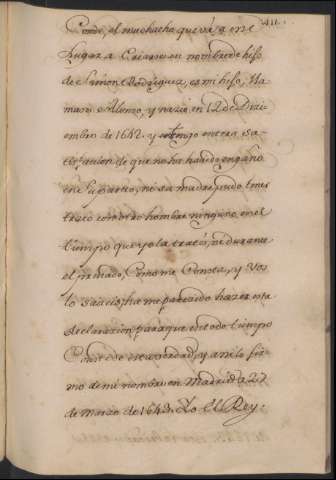 411.
Conde, el muchacho que vá, a ese
Lugar a Criarse en nombre de hijo
de Simon Rodriguez, es mi hijo, Lla
mase Alonso, y nazio en 12 de Dizi
embre de 1642. y tengo entera Sa-
tisfacion de que no ha habido engaño
en el parto, ni su madre pudo tener
trato con otro hombre ninguno en el
tiempo que yo la traté, ni durante
el preñado, Como me Consta, y Vos
lo saveis; ha me parezido hazer esta
declarazion para que en todo tiempo
Conste de esta verdad, y asi lo fir
mo de mi nombre en Madrid a 27
de marzo de 1643. Yo El Rey: